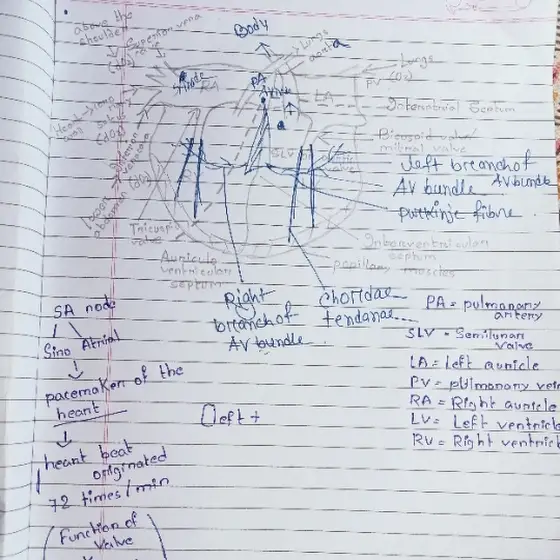 above the
shoulder
Body
Lungs
aorta
Lungs
PV (O₂)
PA
RA
LA
Interatrial Septum
Bicuspid valve
mitral valve
SLV
left branch of
AV bundle
AV bundle
purkinje fibre
Tricuspid
valve
Auriculo
ventricular
septum
Interventricular
septum
papillary muscles
Right
branch of
AV bundle
Chordae
tendanae
PA = pulmonary
artery
SLV = Semilunar
valve
LA = left auricle
PV = pulmonary vein
RA = Right auricle
LV = Left ventricle
RV = Right ventricle
SA node
Sino Atrial
pacemaker of the
heart
heart beat
originated
72 times/min
left +
Function of
Valve